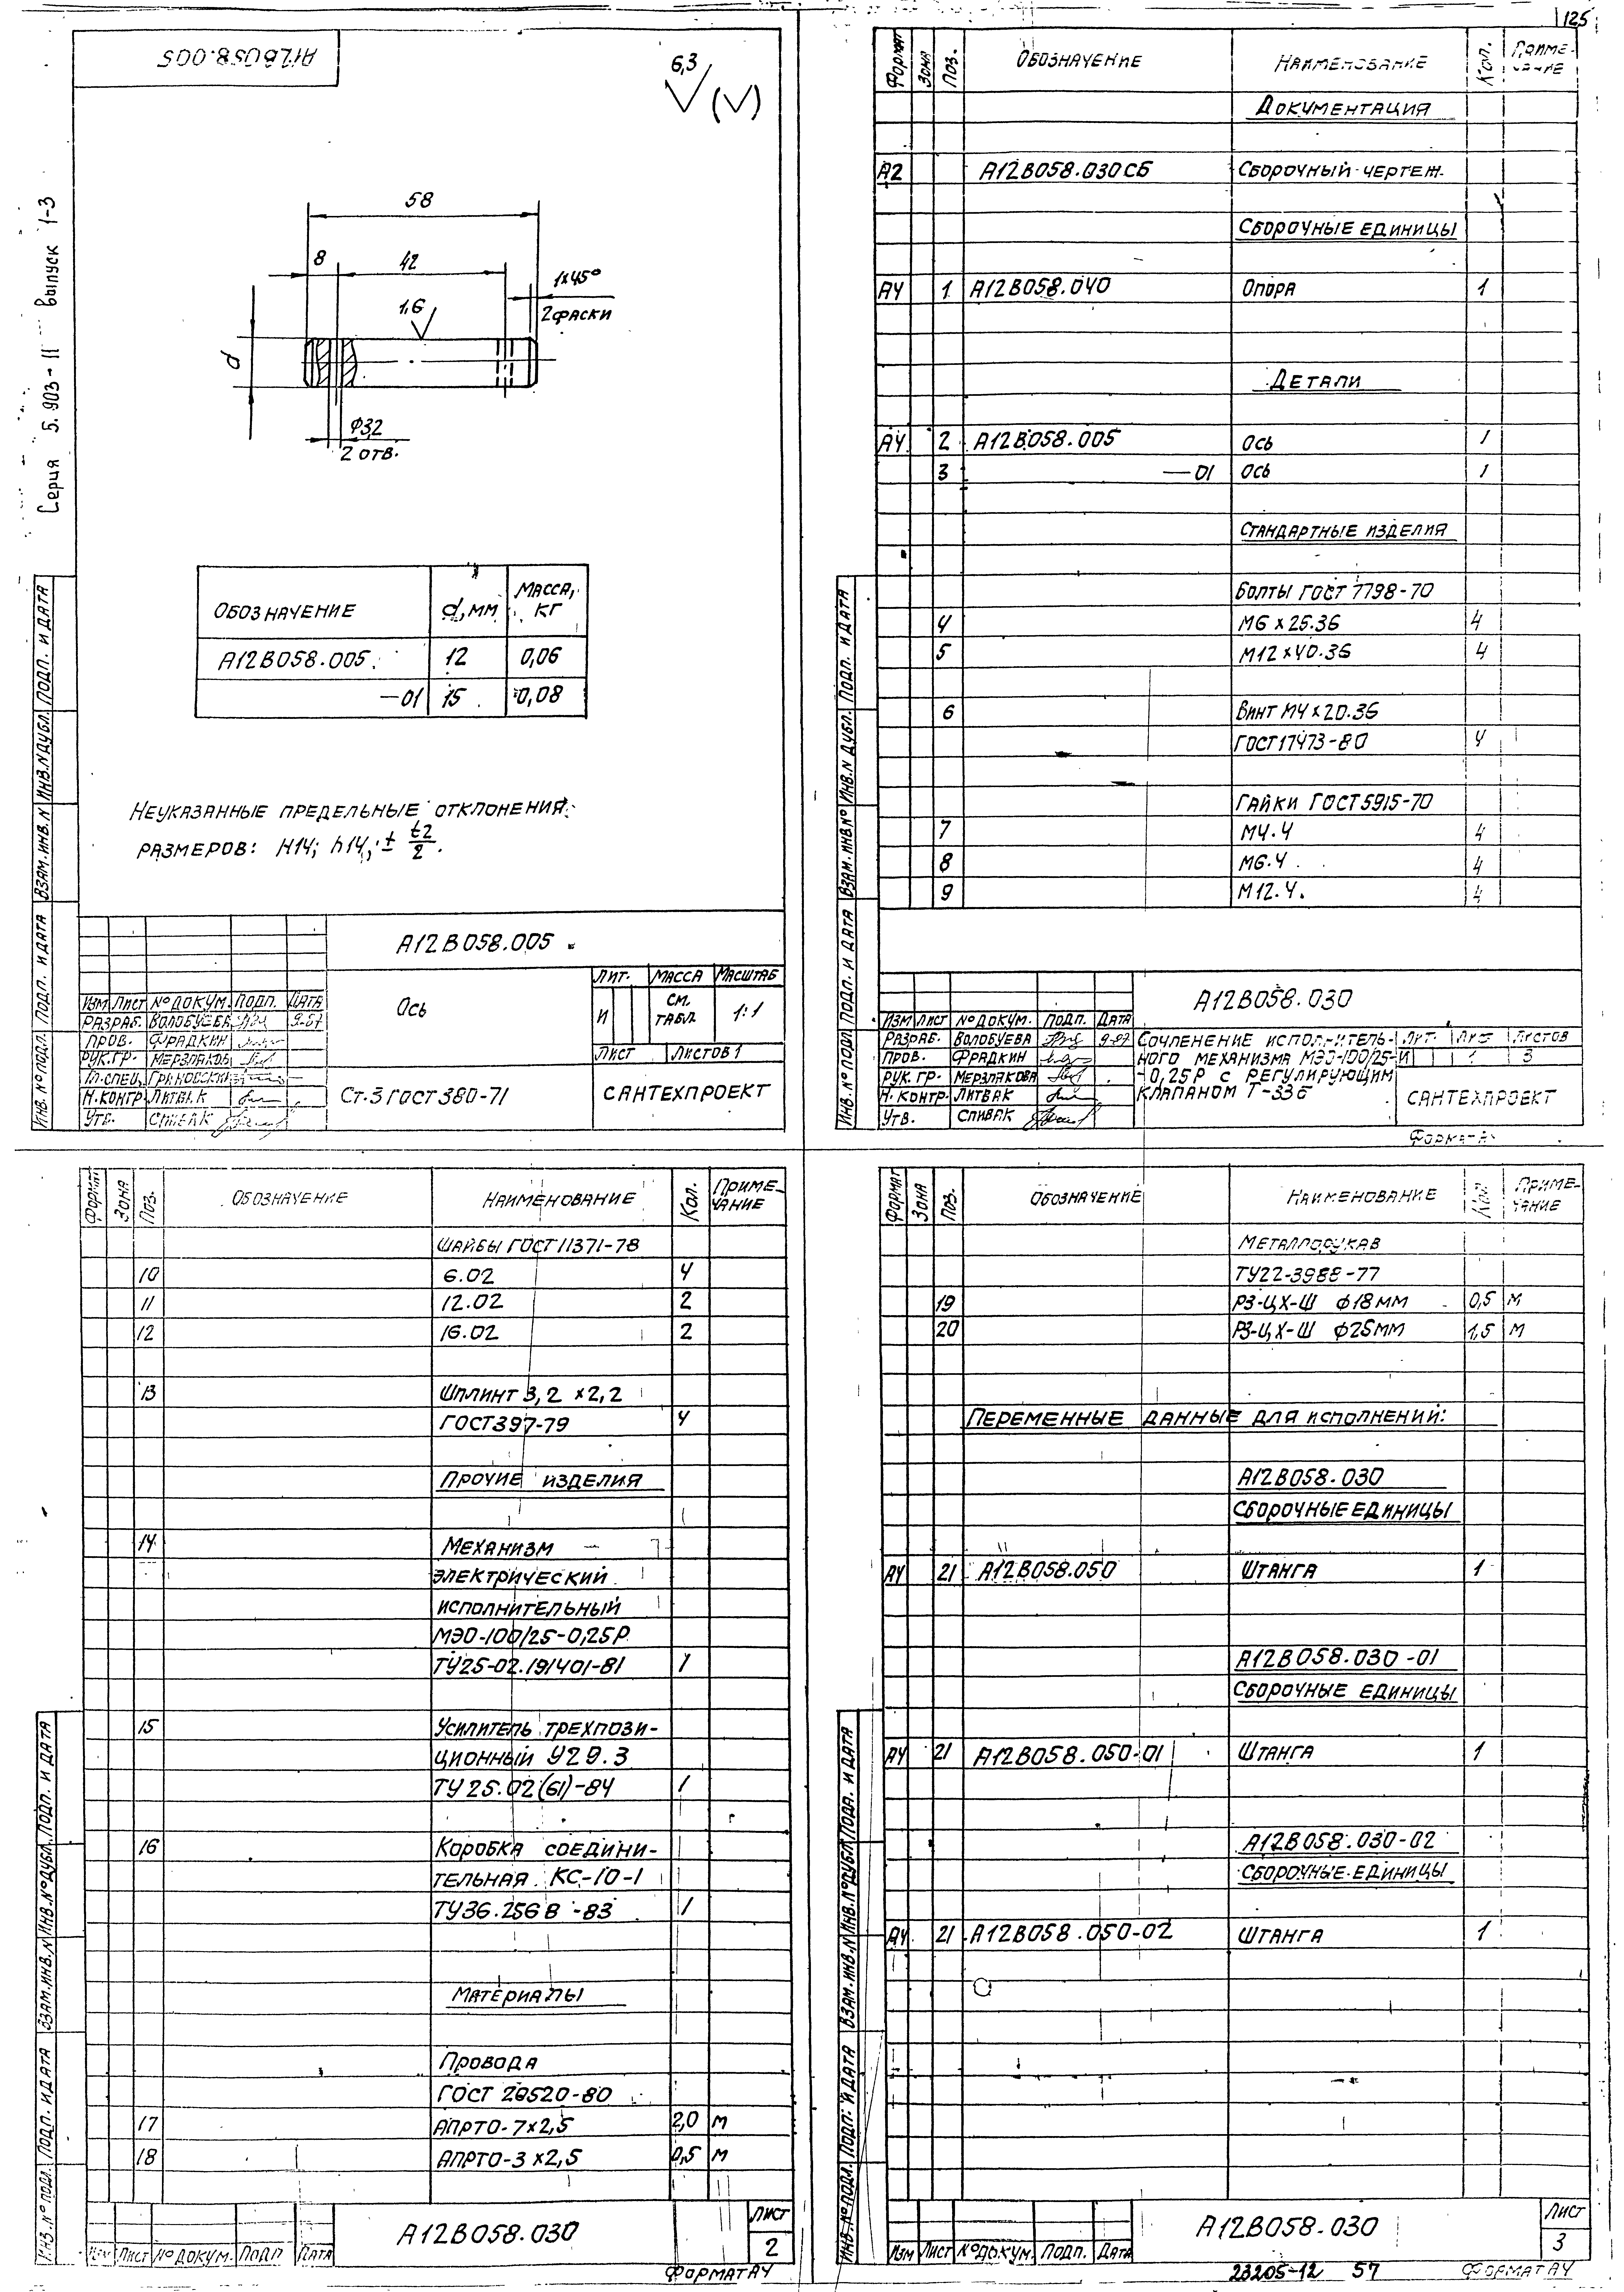 125
А12В058.005
6,3
(√)
Серия 5.903-11 выпуск 1-3
58
8 42
1х45°
2 фаски
1,6
d
ф3,2
2 отв.
Обозначение d, мм Масса, кг
А12В058.005 12 0,06
—01 15 0,08
Неуказанные предельные отклонения
размеров: Н14; h14; ± t2/2.
Инв.№ подл. Подп. и дата Взам.инв.№ Инв.№ дубл. Подп. и дата
А12В058.005
Ось
Лит. Масса Масштаб
И см. табл. 1:1
Лист Листов 1
Изм Лист № докум. Подп. Дата
Разраб. Волобуева 9-87
Пров. Фрадкин
Рук.гр. Мерзлякова
Гл.спец.
Н.контр. Литвак
Утв. Спивак
Ст.3 ГОСТ 380-71
САНТЕХПРОЕКТ
Формат Зона Поз. Обозначение Наименование Кол. Примечание
Документация
А2 А12В058.030СБ Сборочный чертеж
Сборочные единицы
А4 1 А12В058.040 Опора 1
Детали
А4 2 А12В058.005 Ось 1
3 —01 Ось 1
Стандартные изделия
Болты ГОСТ 7798-70
4 М6х25.36 4
5 М12х40.36 4
6 Винт М4х20.36
ГОСТ17473-80 4
Гайки ГОСТ5915-70
7 М4.4 4
8 М6.4 4
9 М12.4. 4
Инв.№ подл. Подп. и дата Взам.инв.№ Инв.№ дубл. Подп. и дата
А12В058.030
Изм Лист № докум. Подп. Дата
Разраб. Волобуева 9-87
Пров. Фрадкин
Рук.гр. Мерзлякова
Н.контр. Литвак
Утв. Спивак
Сочленение исполнитель-
ного механизма МЭО-100/25-
-0,25Р с регулирующим
клапаном Т-33б
Лит. Лист Листов
И 1 3
САНТЕХПРОЕКТ
Формат Зона Поз. Обозначение Наименование Кол. Приме-чание
Шайбы ГОСТ11371-78
10 6.02 4
11 12.02 2
12 16.02 2
13 Шплинт 3,2 х2,2
ГОСТ397-79 4
Прочие изделия
14 Механизм
электрический
исполнительный
МЭО-100/25-0,25Р
ТУ25-02.191401-81 1
15 Усилитель трехпози-
ционный У29.3
ТУ 25.02(61)-84 1
16 Коробка соедини-
тельная КС-10-1
ТУ36.256В-83 1
Материалы
Провода
ГОСТ 20520-80
17 АПРТО-7х2,5 2,0 м
18 АПРТО-3х2,5 0,5 м
Инв.№ подл. Подп. и дата Взам.инв.№ Инв.№ дубл. Подп. и дата
Изм Лист № докум. Подп Дата
А12В058.030
Лист
2
Формат А4
Формат Зона Поз. Обозначение Наименование Кол Приме-чание
Металлорукав
ТУ22-3988-77
19 РЗ-ЦХ-Ш ф18мм 0,5 м
20 РЗ-ЦХ-Ш ф25мм 1,5 м
Переменные данные для исполнений:
А12В058.030
Сборочные единицы
А4 21 А12В058.050 Штанга 1
А12В058.030-01
Сборочные единицы
А4 21 А12В058.050-01 Штанга 1
А12В058.030-02
Сборочные единицы
А4 21 А12В058.050-02 Штанга 1
Инв.№ подл. Подп. и дата Взам.инв.№ Инв.№ дубл. Подп. и дата
Изм Лист № докум. Подп. Дата
А12В058.030
Лист
3
23205-12 57
Формат А4